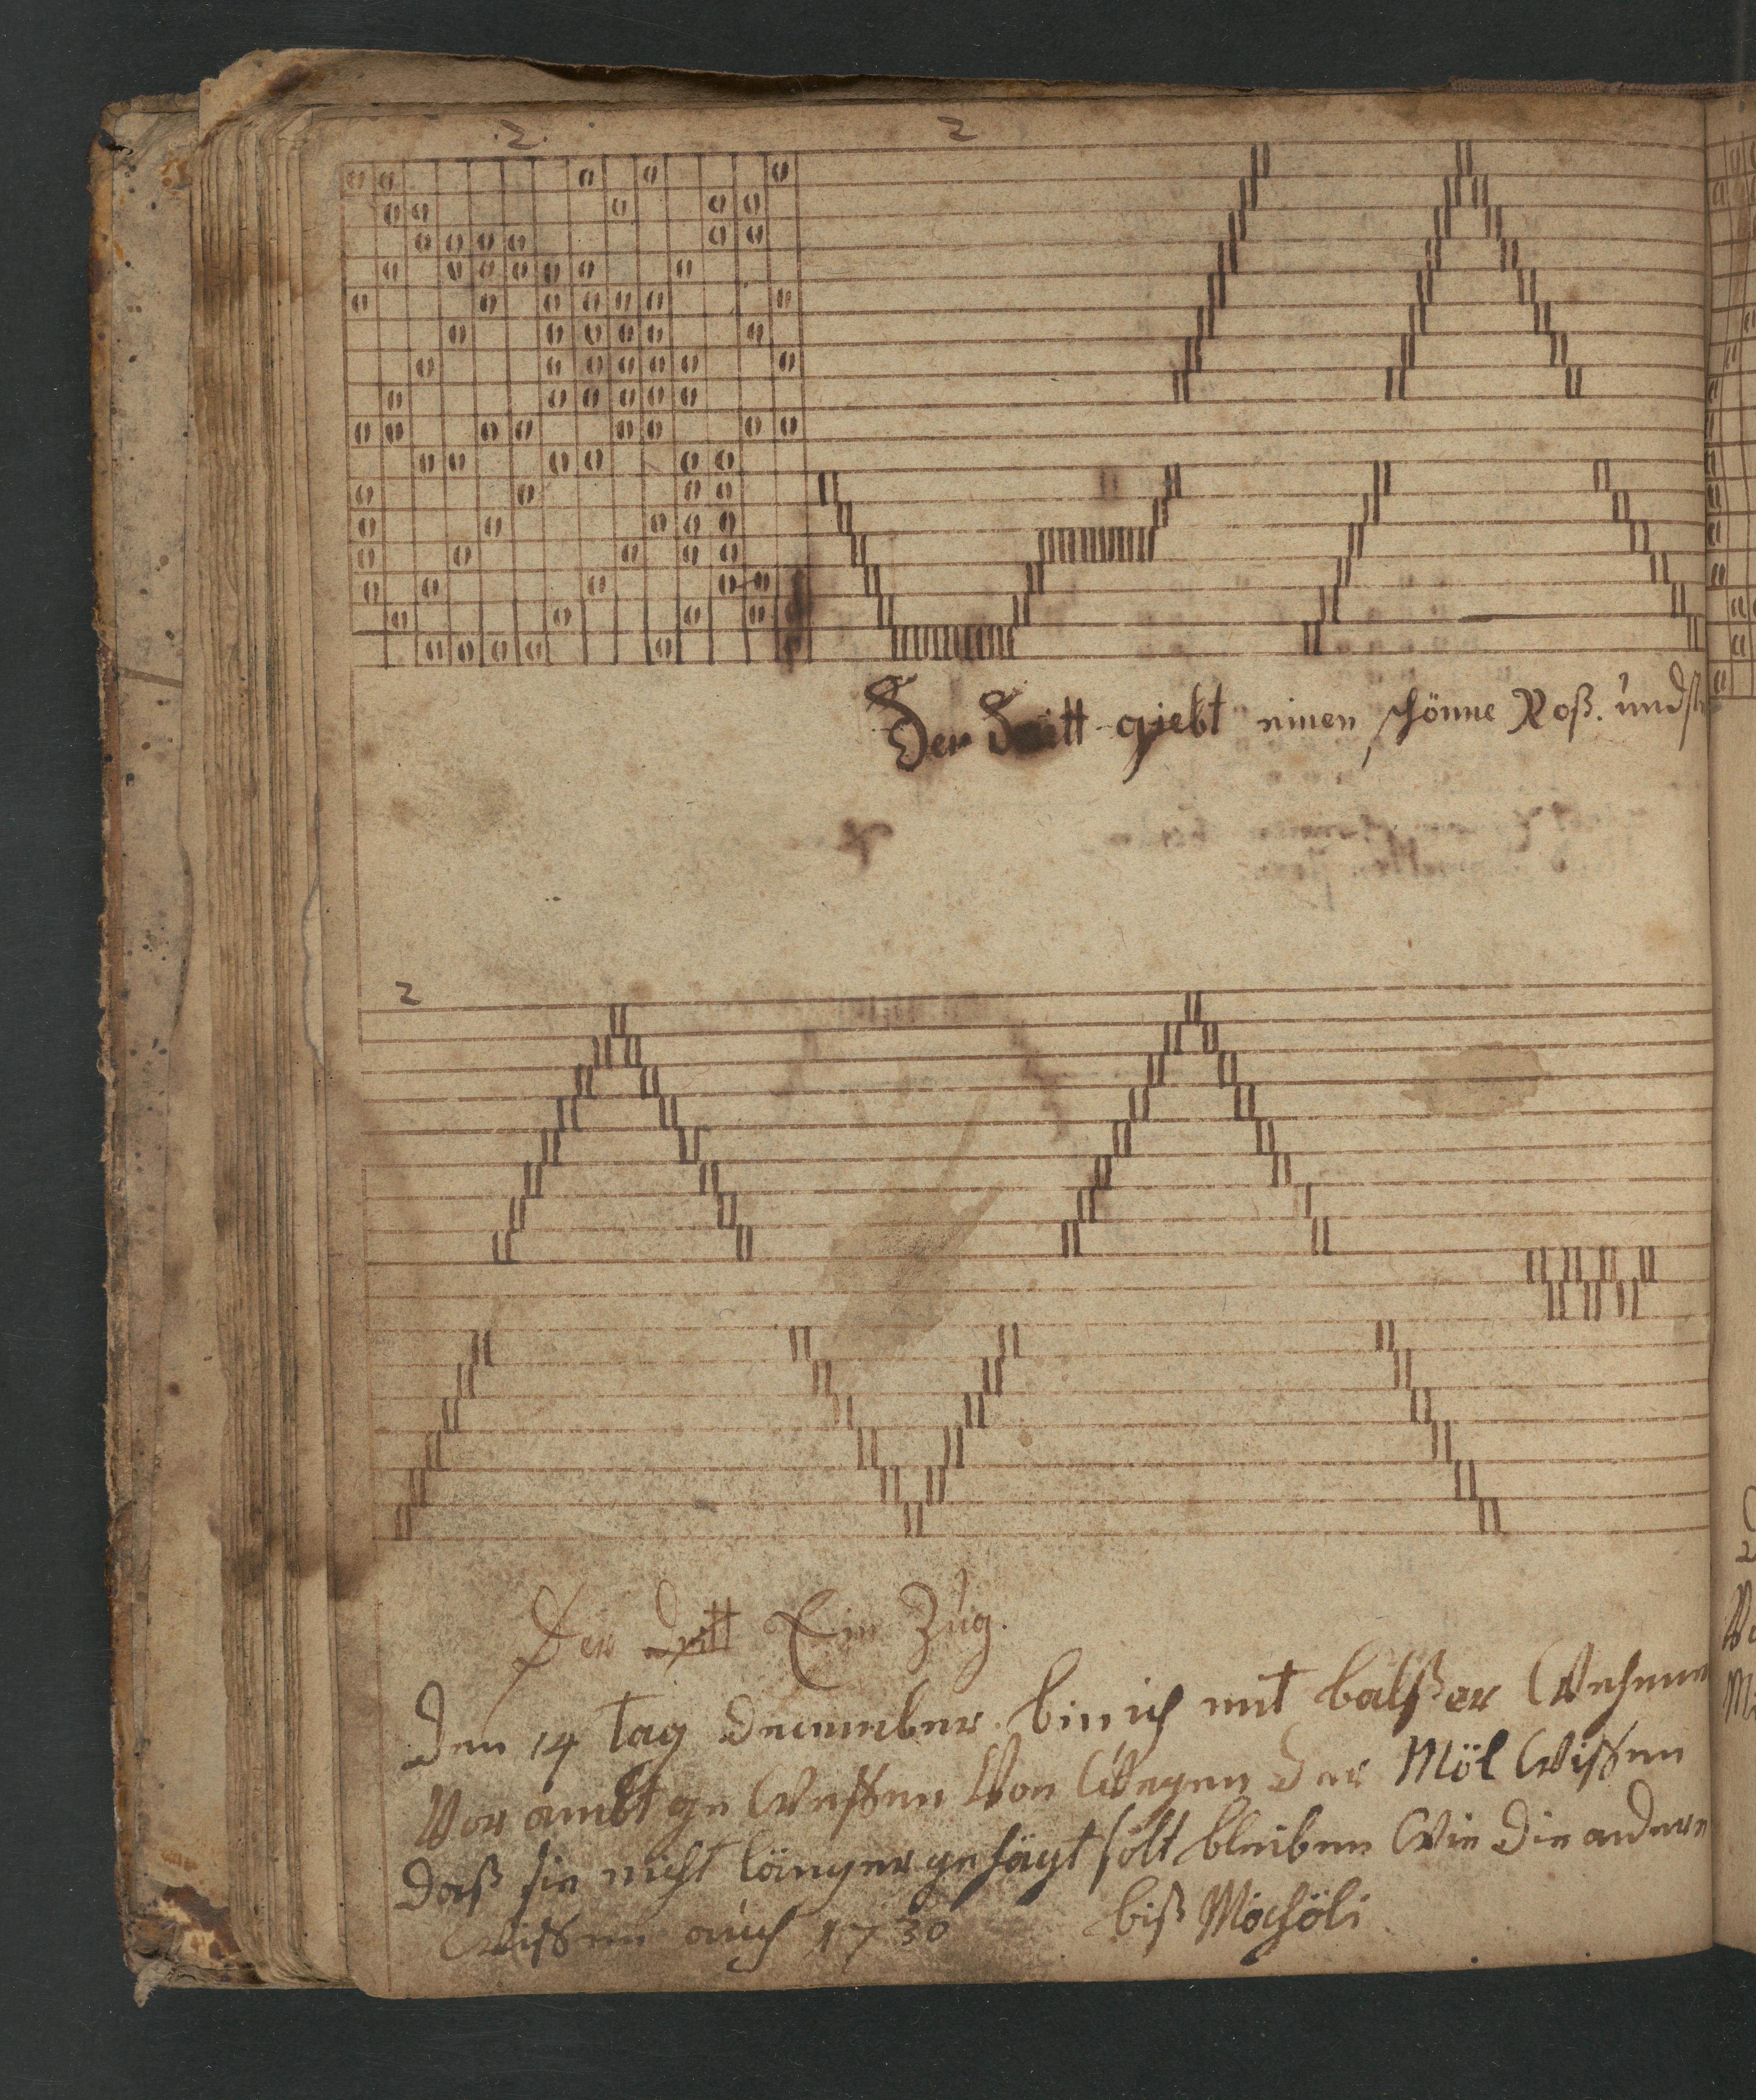 .2. 2
Der Dritt giebt einen schönne Roß. und
2
Der dritt Ein Zug.
Den 14 tag december. bin ich mit balßer
Vor ambt ge Weßen Von Wegen der Möl Wißen
Daß sie nicht länger gehägt solt bleiben Wie die andere
Wißen auch 1730 biß Möchöli